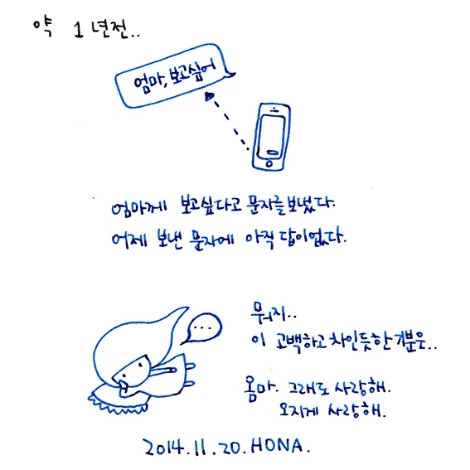 약 1년전..
엄마, 보고싶어
엄마께 보고싶다고 문자를 보냈다.
어제 보낸 문자에 아직 답이없다.
...
뭐지..
이 고백하고 차인듯한 기분은..
옴마. 그래도 사랑해.
오지게 사랑해.
2014.11.20. HONA.